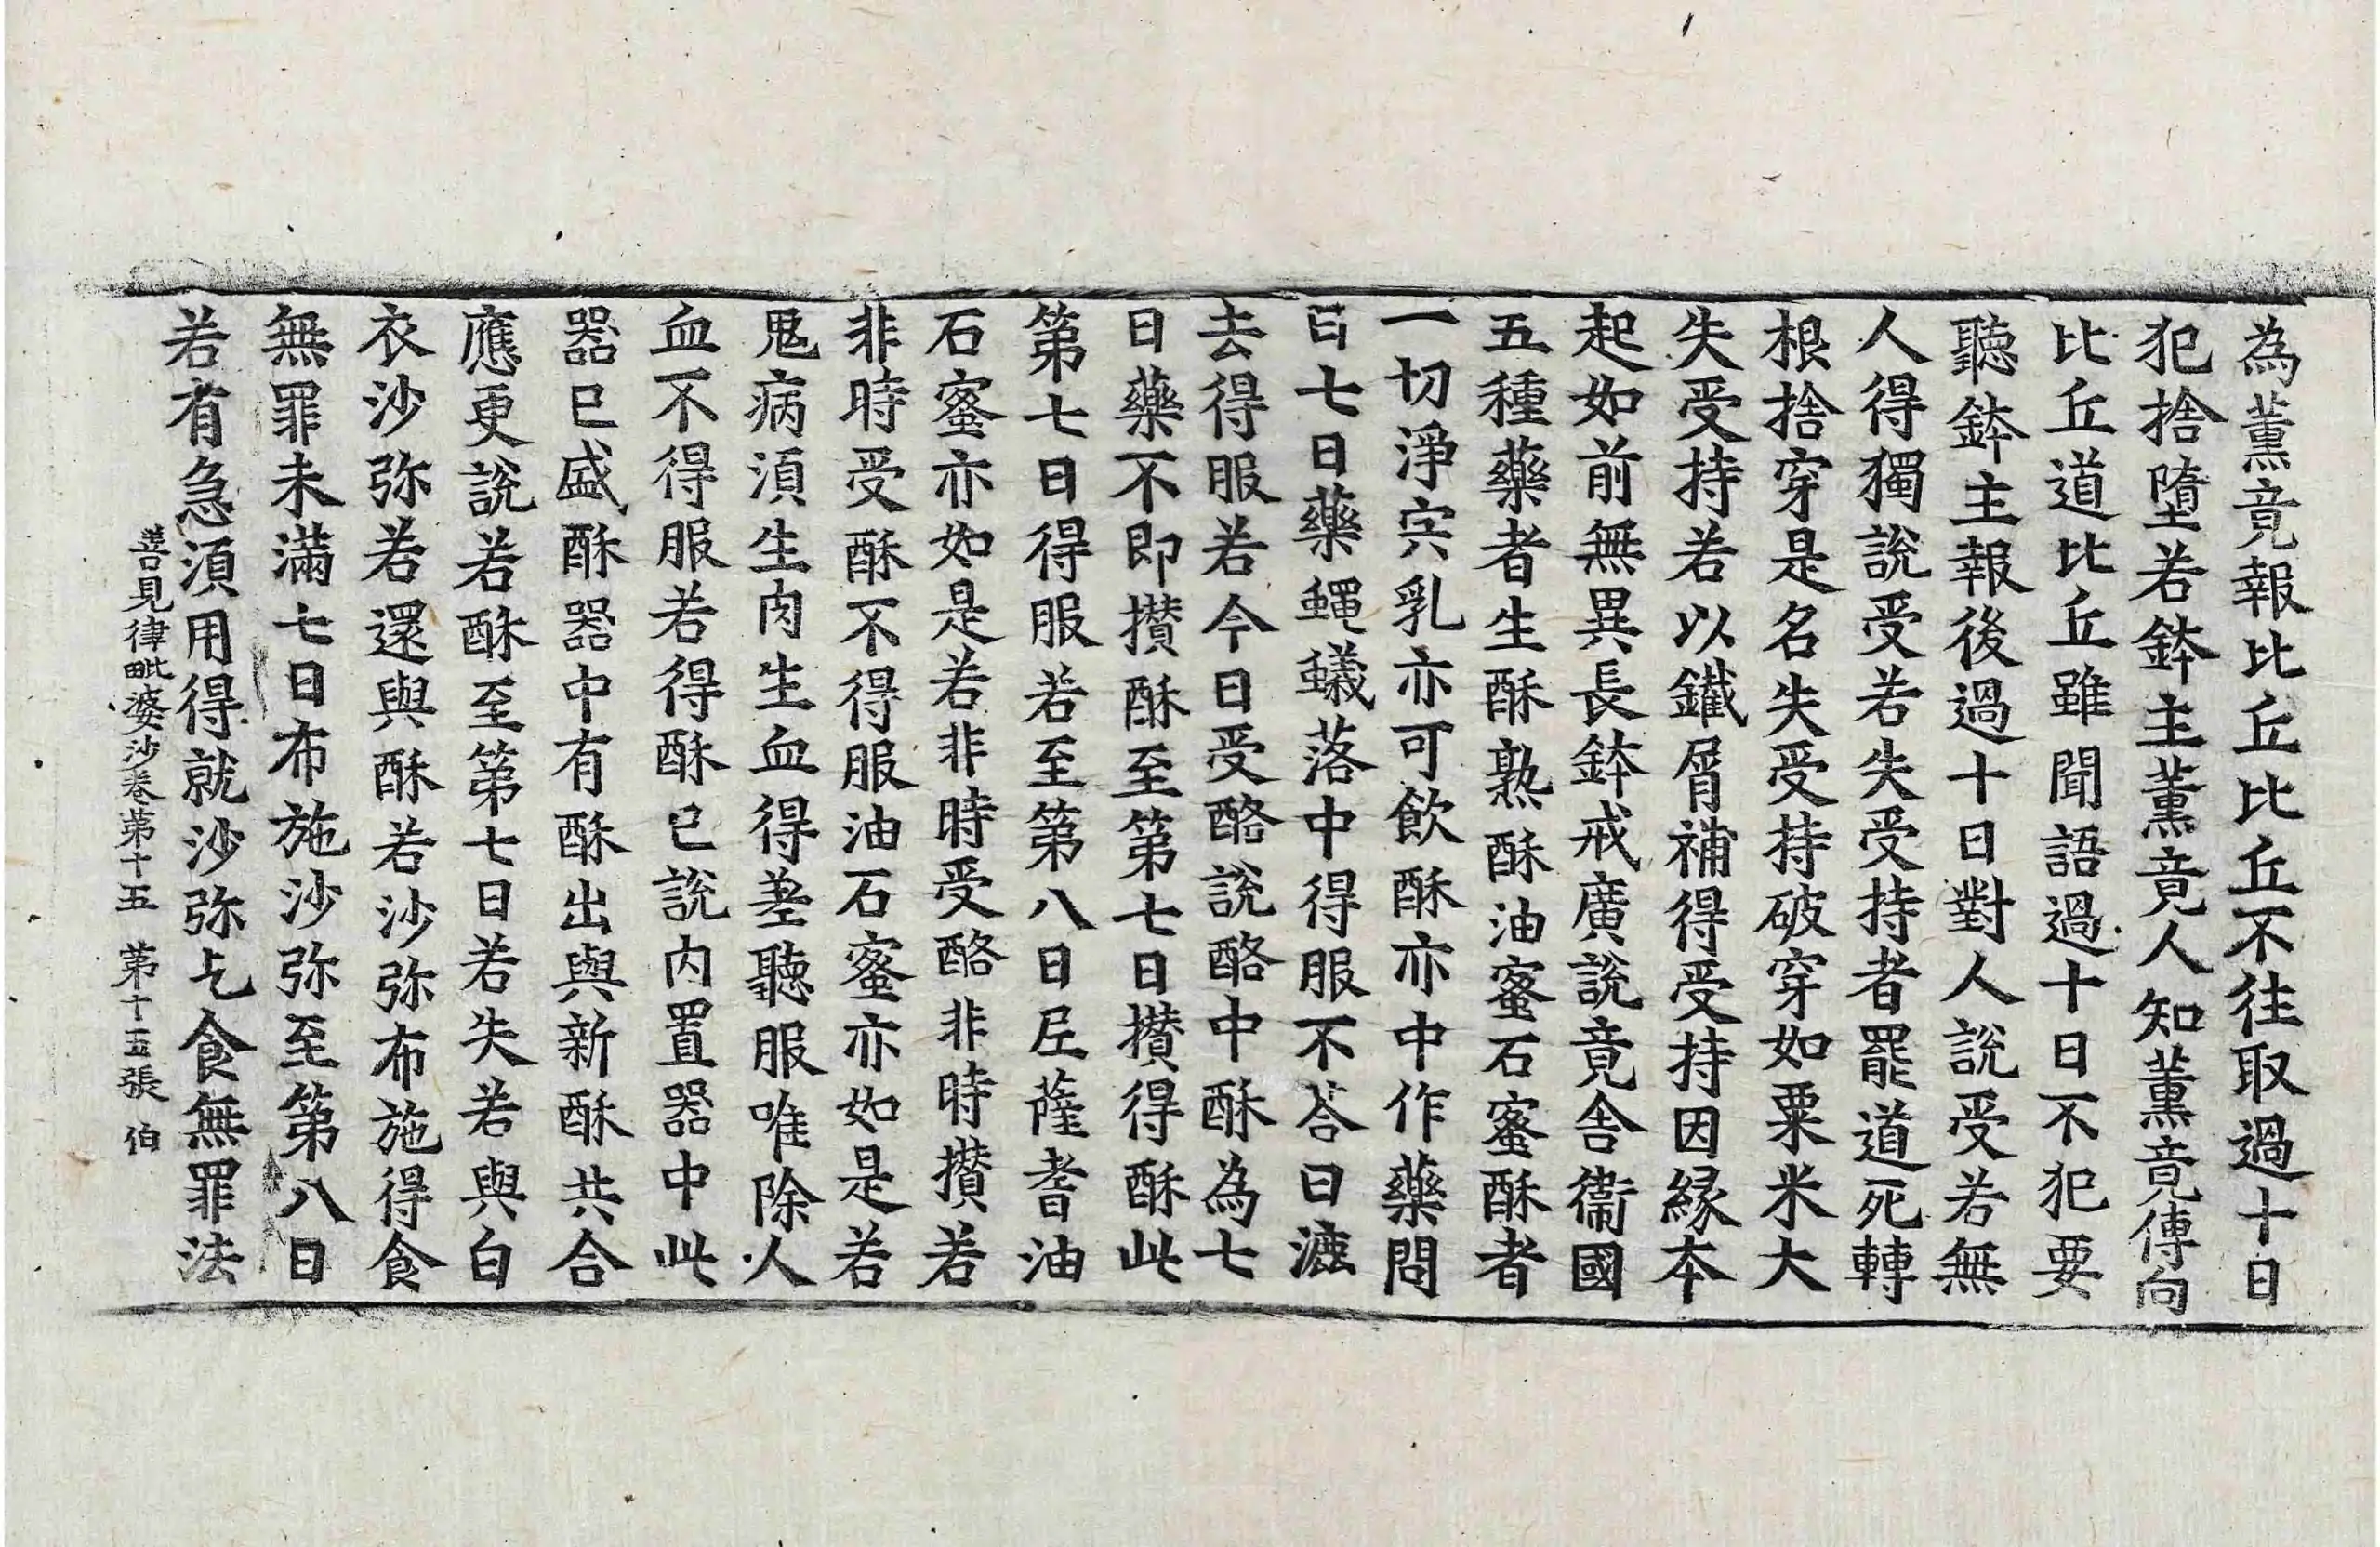 為薰竟報比丘比丘不往取過十日
犯捨墮若鉢主薰竟人知薰竟傳向
比丘道比丘雖聞語過十日不犯要
聽鉢主報後過十日對人說受若無
人得獨說受若失受持者罷道死轉
根捨穿是名失受持破穿如粟米大
失受持若以鐵屑補得受持因緣本
起如前無異長鉢戒廣說竟舍衛國
五種藥者生酥熟酥油蜜石蜜酥者
一切淨宍乳亦可飲酥亦中作藥問
曰七日藥蠅蟻落中得服不荅曰漉
去得服若今日受酪說酪中酥為七
日藥不即攢酥至第七日攢得酥此
第七日得服若至第八日尼薩耆油
石蜜亦如是若非時受酪非時攢若
非時受酥不得服油石蜜亦如是若
鬼病湏生肉生血得差聽服唯除人
血不得服若得酥已說內置器中此
器已盛酥器中有酥出與新酥共合
應更說若酥至第七日若失若與白
衣沙弥若還與酥若沙弥布施得食
無罪未滿七日布施沙弥至第八日
若有急湏用得就沙弥乞食無罪法
善見律毗婆沙卷第十五　第十五張　伯